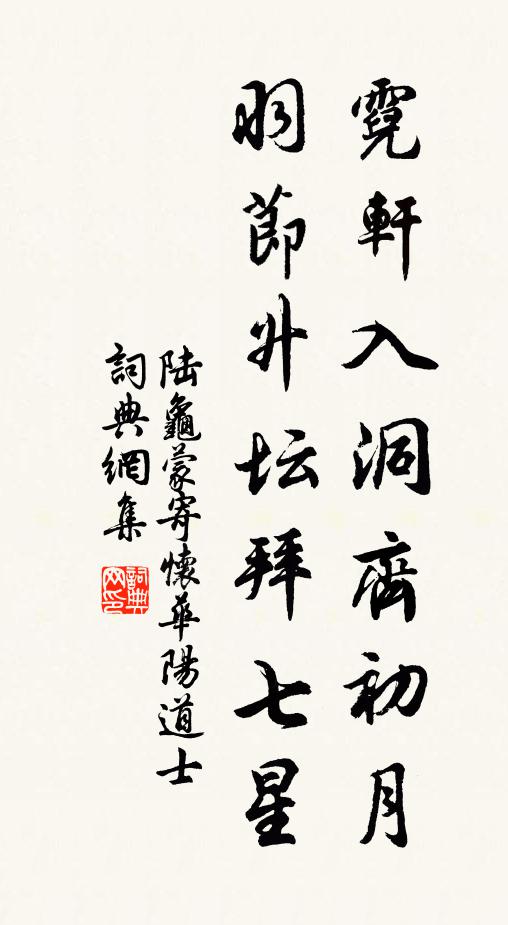 霓軒入洞齊初月
羽節升坛拜七星
陸龜蒙寄懷華陽道士
詞典網集
詞典网印